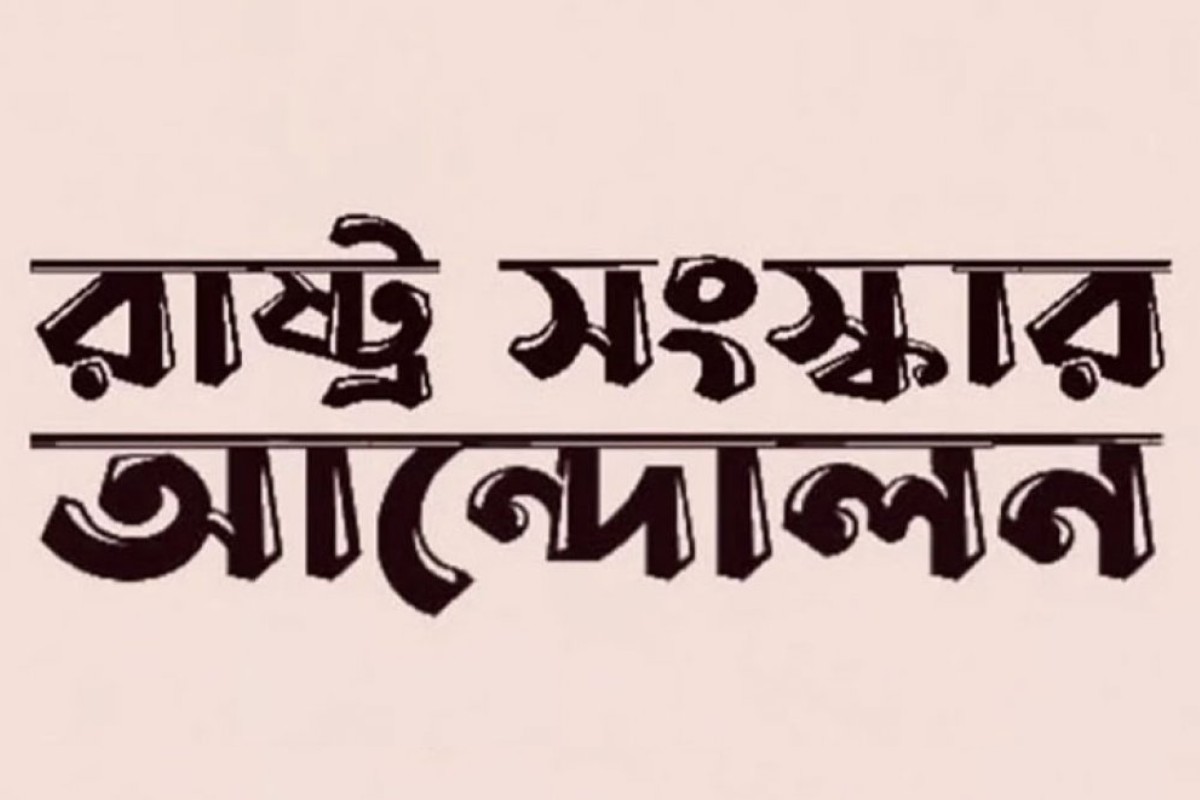 রাষ্ট্র সংস্কার
আন্দোলন